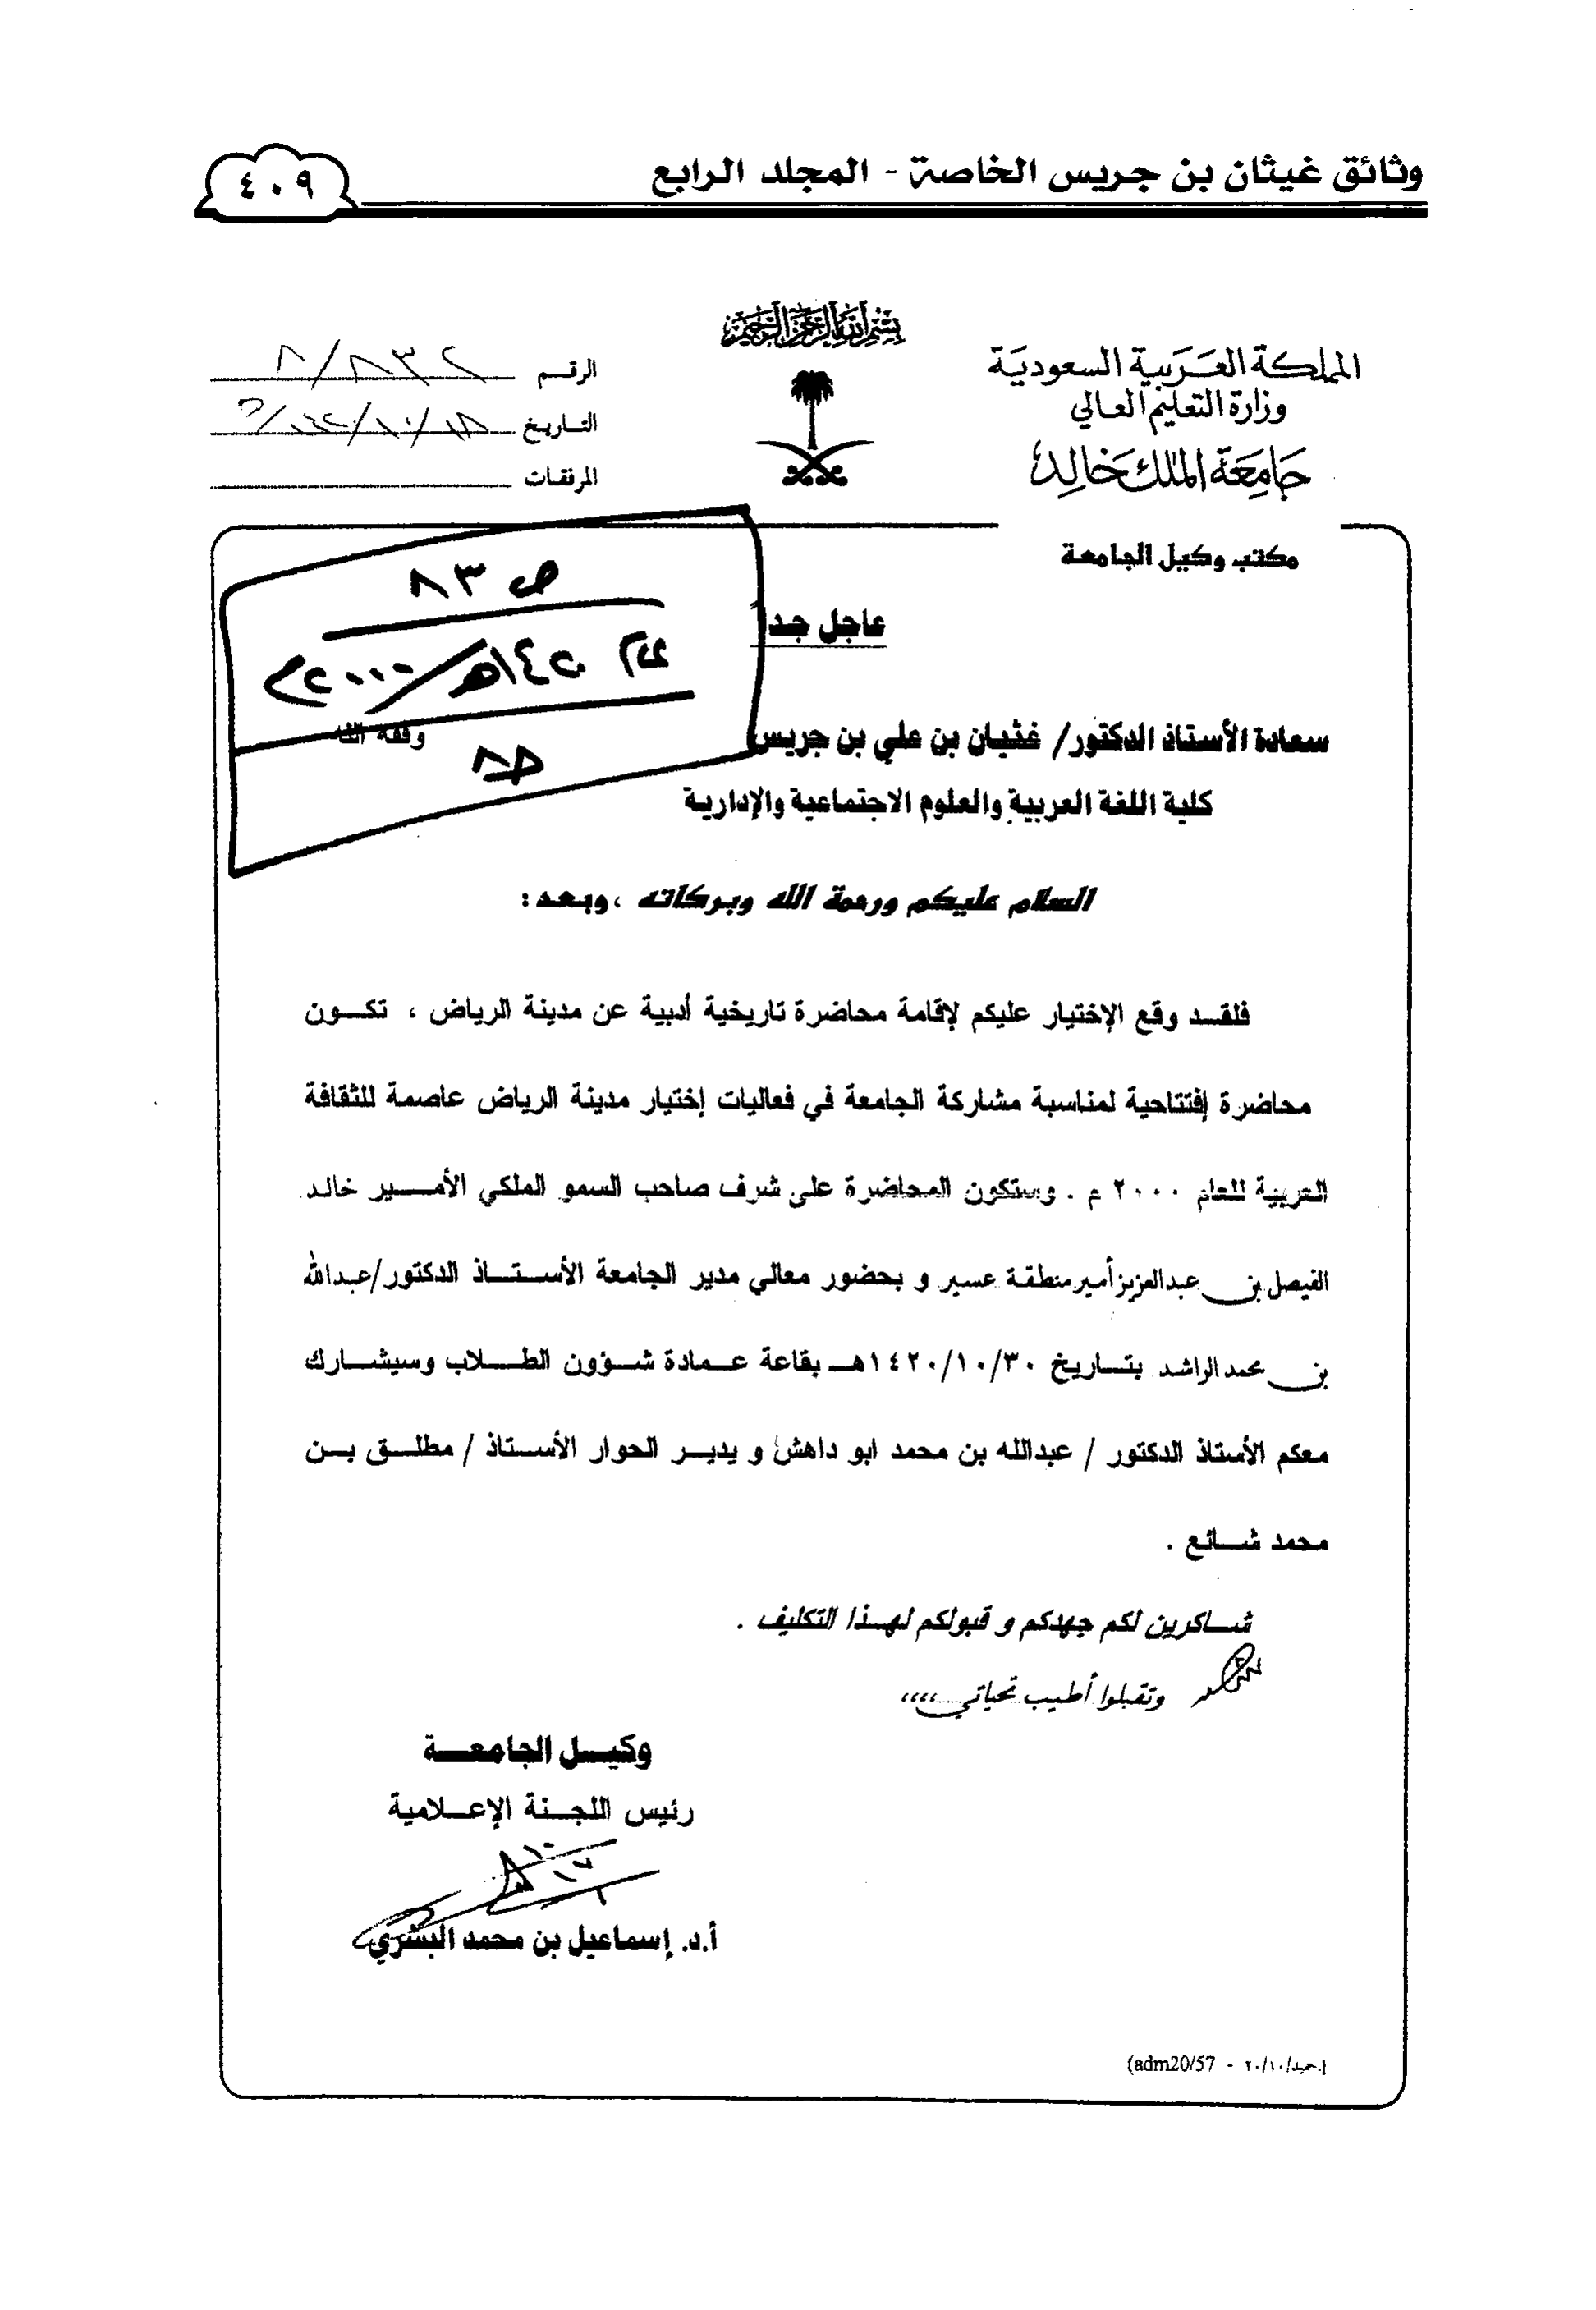 وثائق غيثان بن جريس الخاصة - المجلد الرابع
٤٠٩
بسم الله الرحمن الرحيم
المملكة العربية السعودية
وزارة التعليم العالي
جامعة الملك خالد
الرقم
التاريخ ١٨/١٠/١٤٢٠هـ
المرفقات
مكتب وكيل الجامعة
ص ٨٣
١٤٢٠هـ/٢٠٠٠م
عاجل جدا
سعادة الأستاذ الدكتور/ غثيان بن علي بن جريس وفقه الله
كلية اللغة العربية والعلوم الاجتماعية والإدارية
السلام عليكم ورحمة الله وبركاته ، وبعد :
فلقــد وقع الإختيار عليكم لإقامة محاضرة تاريخية أدبية عن مدينة الرياض ، تكــون
محاضرة إفتتاحية لمناسبة مشاركة الجامعة في فعاليات إختيار مدينة الرياض عاصمة للثقافة
العربية للعام ٢٠٠٠ م . وستكون المحاضرة على شرف صاحب السمو الملكي الأمــير خالد
الفيصل بن عبدالعزيز أمير منطقة عسير و بحضور معالي مدير الجامعة الأســتــاذ الدكتور/عبدالله
بن محمد الراشد بتــاريخ ١٤٢٠/١٠/٣٠هــ بقاعة عــمادة شــؤون الطــلاب وسيشــارك
معكم الأستاذ الدكتور / عبدالله بن محمد ابو داهش و يديــر الحوار الأســتاذ / مطلــق بــن
محمد شــائع .
شــاكرين لكم جهدكم و قبولكم لهــذا التكليف .
وتقبلوا أطيب تحياتي ،،،،
وكيــل الجامعــة
رئيس اللجــنة الإعــلامية
أ.د. إسماعيل بن محمد البشري
(حميد/٢٠/١٠ - adm20/57)